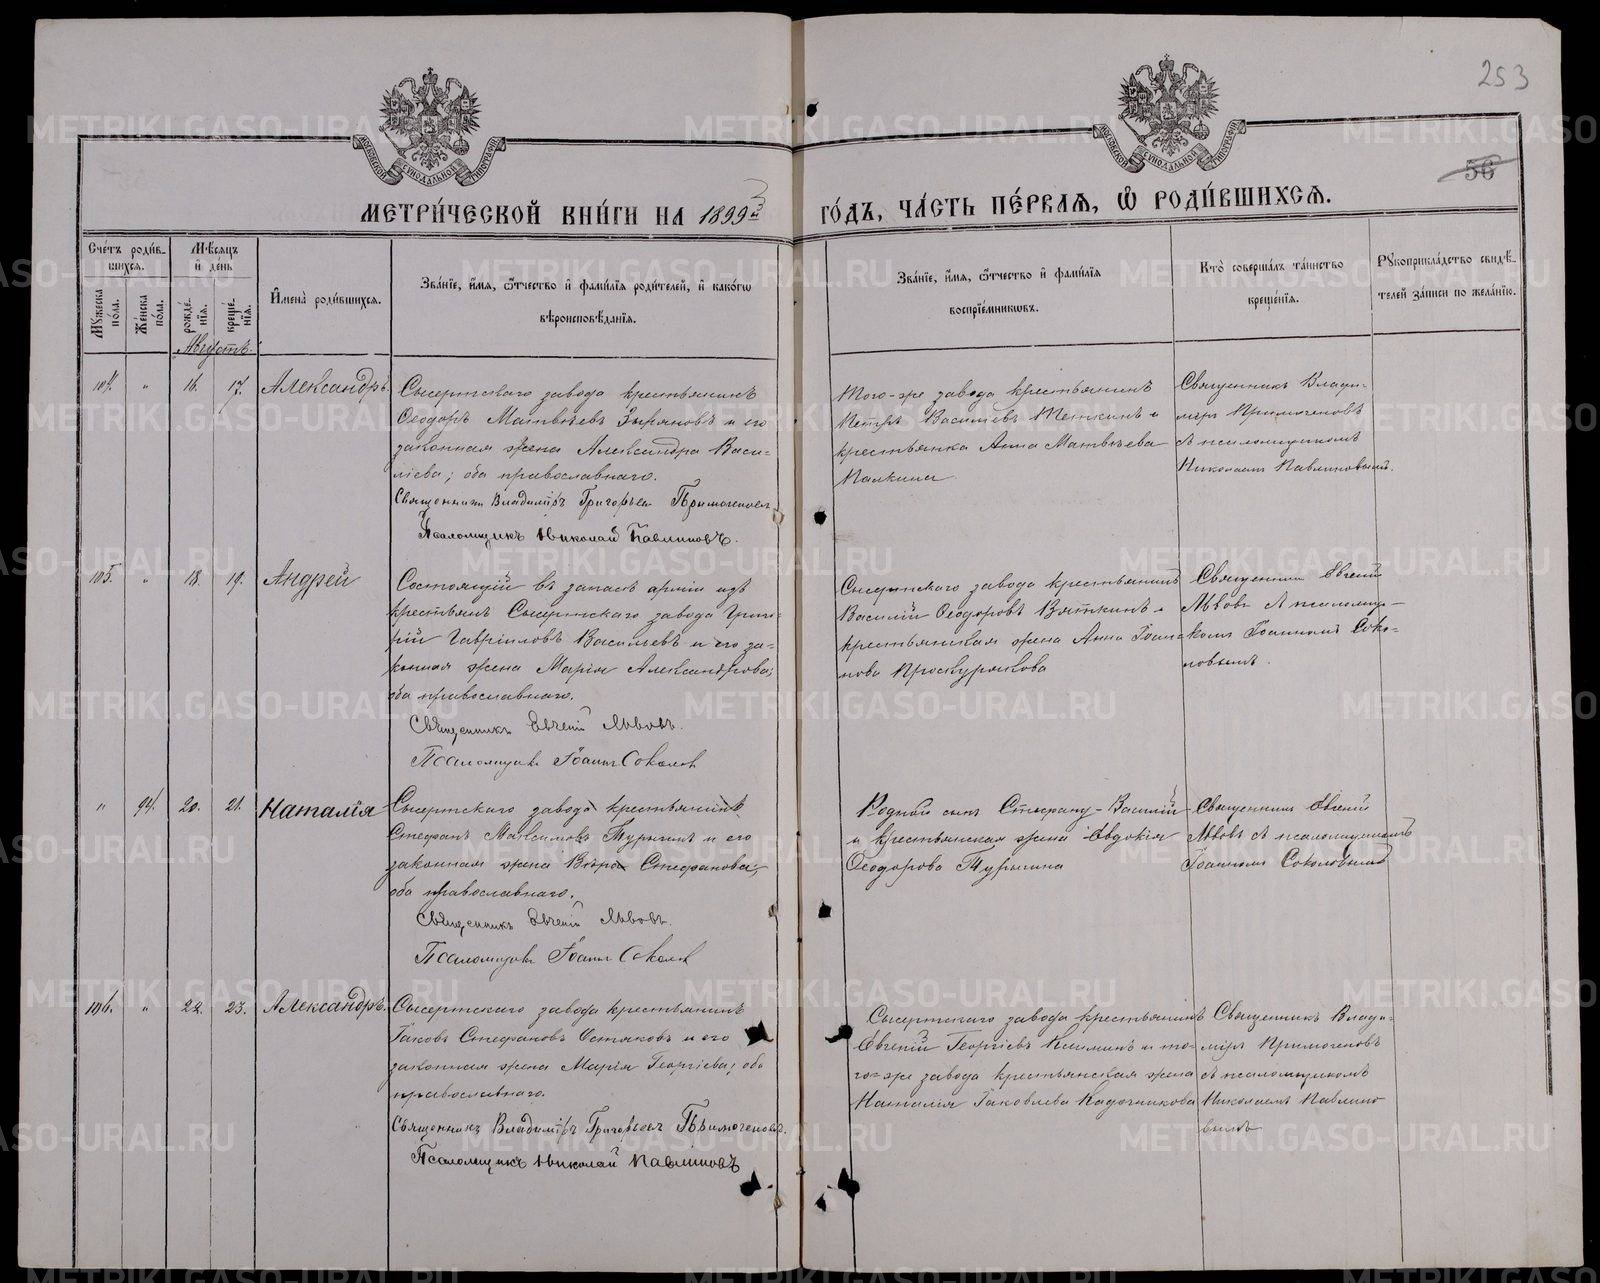 253
56
МОСКОВСКОЙ СѴНОДАЛЬНОЙ ТИПОГРАФІИ
МОСКОВСКОЙ СѴНОДАЛЬНОЙ ТИПОГРАФІИ
МЕТРИ́ЧЕСКОЙ КНИ́ГИ НА 1899й ГО́ДЪ, ЧА́СТЬ ПЕ́РВАѦ, Ѡ҆ РОДИ́ВШИХСѦ.
Сче́тъ роди́в-
шихся.
Мѣ́сяцъ
и҆ де́нь
Му́жеска по́ла.
Же́нска по́ла.
рожде́нїя.
креще́нїя.
И҆мена̀ роди́вшихся.
Зва́нїе, и҆́мя, ѻ҆́тчество и҆ фами́лїя роди́телей, и҆ како́гѡ
вѣроисповѣ́данїя.
Зва́нїе, и҆́мя, ѻ҆́тчество и҆ фами́лїя
воспрїе́мникѡвъ.
Кто̀ соверша́лъ та́инство
креще́нїя.
Рꙋкоприкла́дство свидѣ́-
телей за́писи по жела́нїю.
Августъ.
104. " 16. 17. Александръ.
Сысертскаго завода крестьянинъ
Ѳеодоръ Матвѣевъ Зыряновъ и его
законная жена Александра Васи-
ліева; оба православнаго.
Священникъ Владиміръ Григорьевъ Примогеновъ
Псаломщикъ Николай Павлиновъ.
Того-же завода крестьянинъ
Петръ Василіевъ Теткинъ и
крестьянка Анна Матвѣева
Палкина
Священникъ Влади-
міръ Примогеновъ
съ псаломщикомъ
Николаемъ Павлиновымъ.
105. " 18. 19. Андрей
Состоящій въ запасѣ арміи изъ
крестьянъ Сысертскаго завода Григо-
рій Гавріиловъ Васильевъ и его за-
конная жена Марія Александрова;
оба православнаго.
Священникъ Евгеній Львовъ.
Псаломщикъ Іоаннъ Соколов
Сысертскаго завода крестьянинъ
Василій Ѳеодоровъ Вяткинъ и
крестьянская жена Анна Іоан-
нова Проскурякова
Священникъ Евгеній
Львовъ съ псаломщи-
комъ Іоанномъ Соко-
ловымъ.
" 94. 20. 21. Наталія
Сысертскаго завода крестьянинъ
Стефанъ Максимовъ Турыгинъ и его
законная жена Вѣра Стефанова;
оба православнаго.
Священникъ Евгеній Львовъ.
Псаломщикъ Іоаннъ Соколов
Родной сынъ Стефану-Василій
и крестьянская жена Евдокія
Ѳеодорова Турыгина
Священникъ Евгеній
Львовъ съ псаломщикомъ
Іоанномъ Соколовымъ
106. " 22. 23. Александръ.
Сысертскаго завода крестьянинъ
Іаковъ Стефановъ Остяковъ и его
законная жена Марія Георгіева; оба
православнаго.
Священникъ Владиміръ Григорьевъ Примогеновъ.
Псаломщикъ Николай Павлиновъ
Сысертскаго завода крестьянинъ
Евгеній Георгіевъ Климинъ и то-
го-же завода крестьянская жена
Наталія Іаковлева Кадочникова
Священникъ Влади-
міръ Примогеновъ
съ псаломщикомъ
Николаемъ Павлино-
вымъ
METRIKI.GASO-URAL.RU